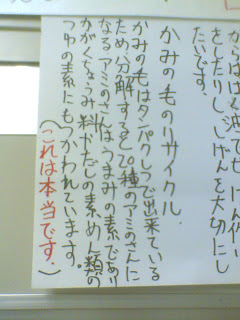 からはく波でも
をしたりし、しげんを大切にし
たいです。
かみのものリサイクル.
かみのもはタンパクしつで出来ている
ため、分解すると20種のアミのさんに
なる。アミのさんはうまみの素であり
かがくちょうみ料やだしの素、めん類の
つゆの素にもつかわれています。
(これは本当です.)